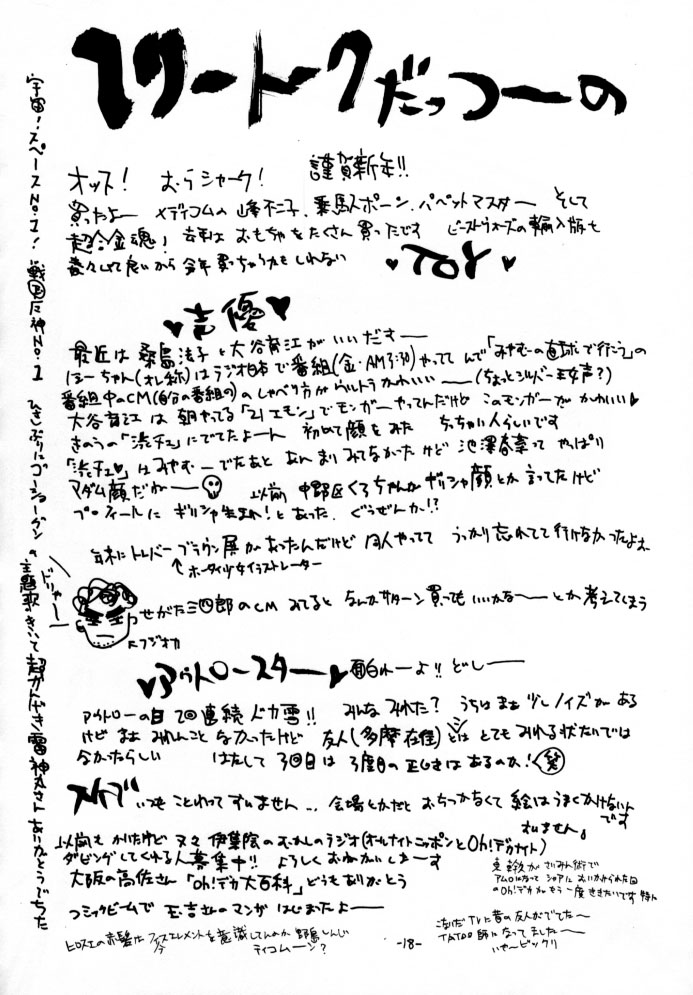 フリートークだっつーの
オッス！ むらシャーク！ 謹賀新年!!
買ったよー メディコムの峰不二子、乗馬スポーン、パペットマスター そして
超合金魂！ 去年は おもちゃをたくさん買ったです ビーストウォーズの輸入版も
着々として良いから今年買っちゃうかもしれない ♥TOY♥
♥声優♥
最近は 桑島法子と大谷育江がいいだすー
ほーちゃん(オレ称)はラジオ日本で番組(金・AM3:30)やってんで「みやむーの直球で行こう」の
番組中のCM(自分の番組の)のしゃべり方がウルトラかわいいー(ちょっとシルバー王女声？)
大谷育江は 朝やってる「21エモン」でモンガーやってんだけど このモンガーが かわいい♥
きのうの「渋チェ」にでてたよーん 初めて顔をみた ちっちゃい人らしいです
「渋チェ♥」はみやむーでたあと あんまりみてなかったけど 池澤春菜って やっぱり
マダム顔だがー 以前 中野区くろちゃんが ギリシャ顔とか言ってたけど
プロフィールに ギリシャ生まれ！とあった ぐうぜんか!?
年末にトレバー・ブラウン展があったんだけど 同人やってて うっかり忘れてて行けなかったよォ
↑ホータイ少女イラストレーター
ドリャー
せがた三四郎のCM みてると なんかサターン買ってもいいかなー とか考えてしまう
←フジオカ
♥アウトロースター♥ 面白れーよ!! どしー
アウトローの日 2回連続ドカ雪!! みんなみれた？ うちはまぁ少しノイズがある
けど まぁ みれんことなかったけど 友人(多摩在住)とかはとてもみれる状たいでは
なかったらしい はたして3回目は 3度目の正じきはあるのか！(笑)
スケブ いつも ことわってすいません… 会場とかだと おちつかなくて 絵はうまくかけないんです
すいません。
以前もかいたけど 又々 伊集院のむかしのラジオ(オールナイトニッポンとOh!デカナイト)
ダビングしてくれる人募集中!! よろしくおねがいしまーす
大阪の高佐さん「Oh!デカ大百科」どうもありがとう
コミックビームで 玉吉さんのマンガ はじまったよー
ヒロスエの赤髪は フィフスエレメントを意識してんのか 野島しんじ
ティコムーン？
東幹久がさいみん術で
アムロになって シャアにおいかけられた回
のOh!デカがもう一度ききたいです 特に
こないだTVに昔の友人がでてたー
TATOO師になってましたー
いやービックリ
-18-
宇宙！スペースNo.1！ 戦国魔神No.1 ひさしぶりにゴーショーグンの主題歌きいて超かんげき 雷神丸さん ありがとうでした